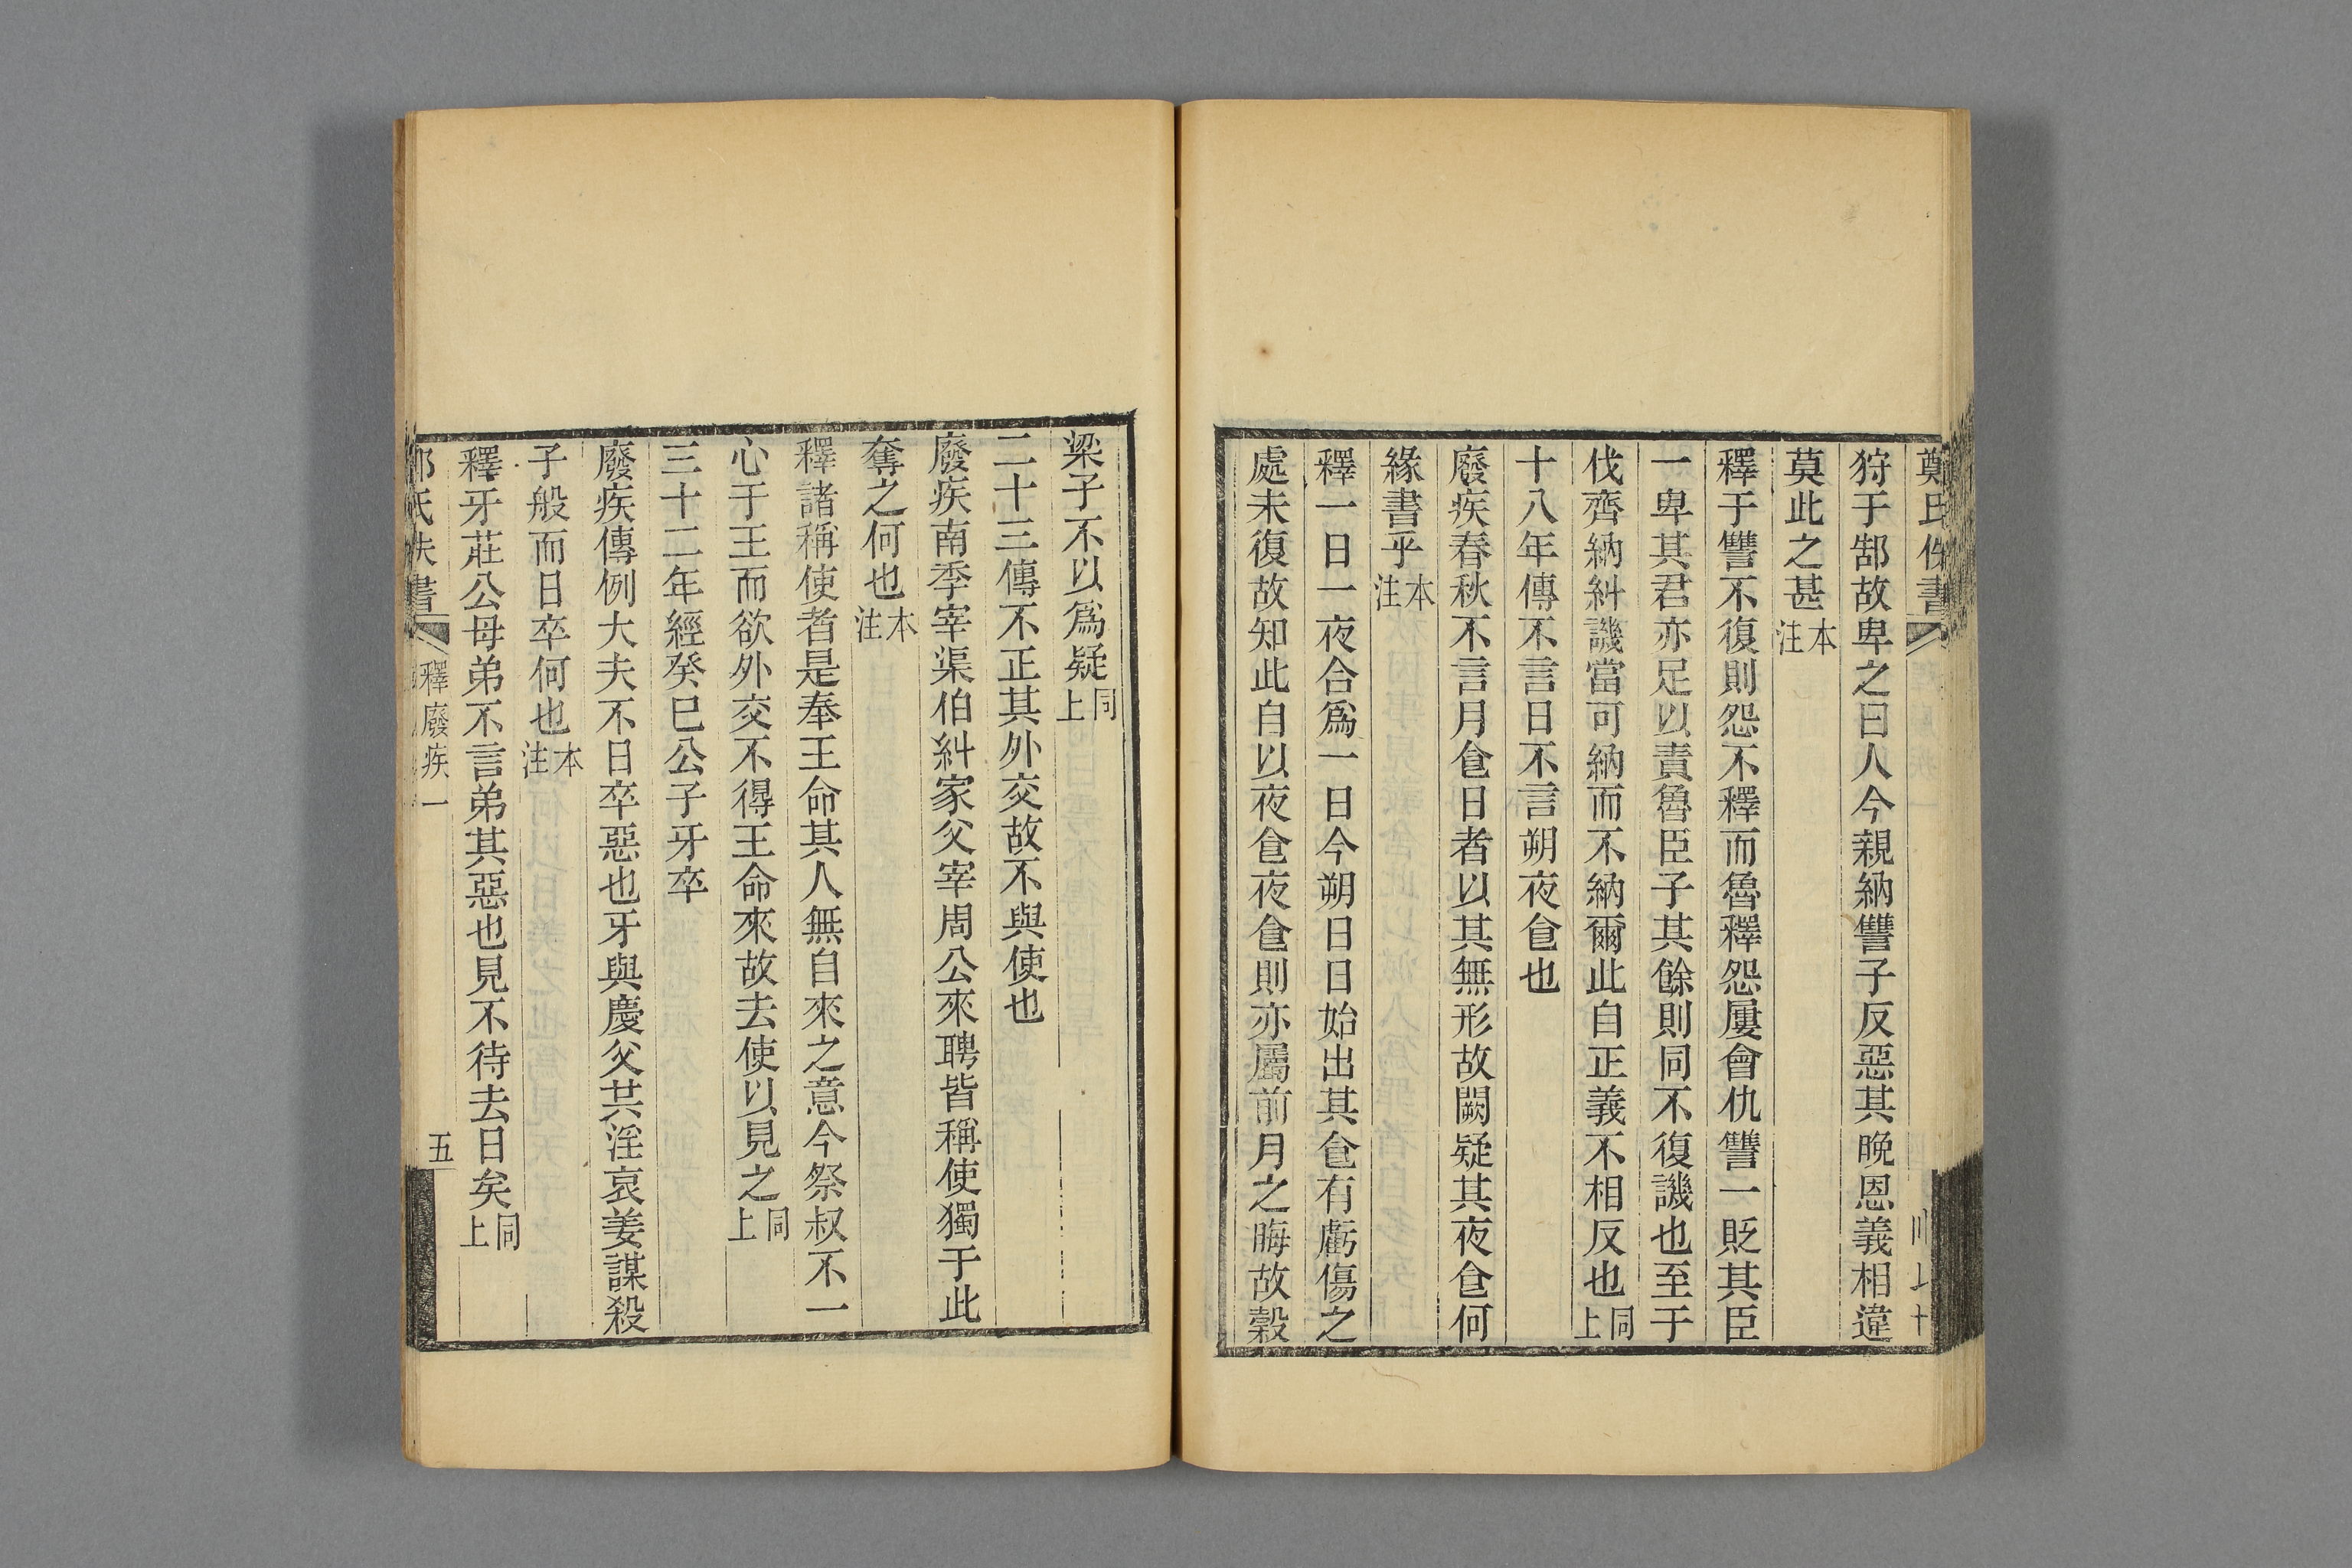 鄭氏佚書
狩于郜故卑之曰人今親納讐子反惡其晚恩義相違
莫此之甚本注
釋于讐不復則怨不釋而魯釋怨屢會仇讐一貶其臣
一卑其君亦足以責魯臣子其餘則同不復譏也至于
伐齊納糾譏當可納而不納爾此自正義不相反也同上
十八年傳不言日不言朔夜食也
廢疾春秋不言月食日者以其無形故闕疑其夜食何
緣書乎本注
釋一日一夜合爲一日今朔日日始出其食有虧傷之
處未復故知此自以夜食夜食則亦屬前月之晦故穀
梁子不以爲疑同上
二十三傳不正其外交故不與使也
廢疾南季宰渠伯糾家父宰周公來聘皆稱使獨于此
奪之何也本注
釋諸稱使者是奉王命其人無自來之意今祭叔不一
心于王而欲外交不得王命來故去使以見之同上
三十二年經癸巳公子牙卒
廢疾傳例大夫不日卒惡也牙與慶父共淫哀姜謀殺
子般而日卒何也本注
釋牙莊公母弟不言弟其惡也見不待去日矣同上
釋廢疾一
五